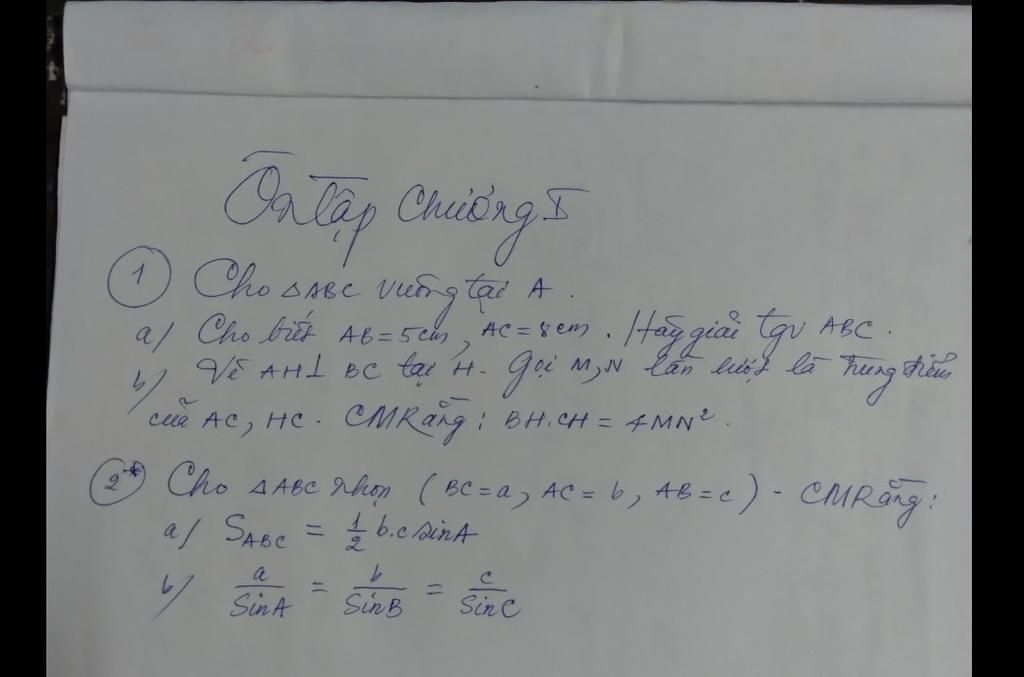 Ôn tập Chương I
1 Cho △ABC vuông tại A.
a/ Cho biết AB=5cm, AC=8cm. Hãy giải tgv ABC.
b/ Vẽ AH⊥ BC tại H. Gọi M,N lần lượt là trung điểm
của AC, HC. CMRằng: BH.CH = 4MN².
2* Cho △ABC nhọn (BC=a, AC=b, AB=c) - CMRằng:
a/ S_ABC = 1/2 b.c sinA
b/ a/SinA = b/SinB = c/SinC